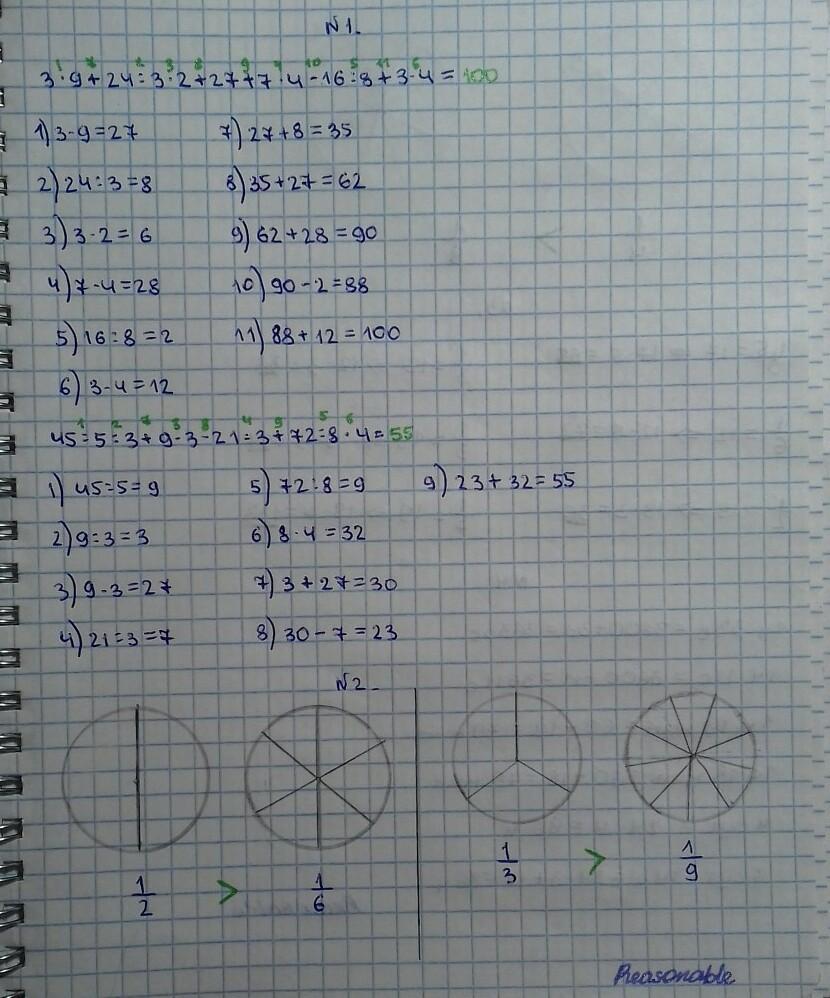 N1.
3·9+24:3·2+27+7·4-16:8+3·4=100
1) 3·9=27 7) 27+8=35
2) 24:3=8 8) 35+27=62
3) 3·2=6 9) 62+28=90
4) 7·4=28 10) 90-2=88
5) 16:8=2 11) 88+12=100
6) 3·4=12
45:5:3+9·3-21:3+72:8·4=55
1) 45:5=9 5) 72:8=9 9) 23+32=55
2) 9:3=3 6) 8·4=32
3) 9·3=27 7) 3+27=30
4) 21:3=7 8) 30-7=23
N2.
1/2 > 1/6 1/3 > 1/9
Reasonable